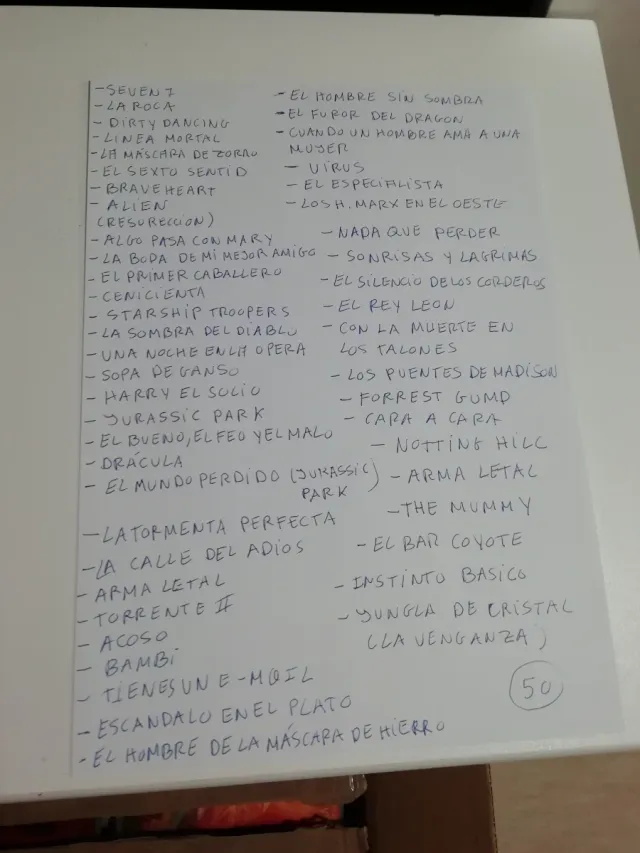 - SEVEN 7
- LA ROCA
- DIRTY DANCING
- LINEA MORTAL
- LA MÁSCARA DE ZORRO
- EL SEXTO SENTID
- BRAVEHEART
- ALIEN
(RESURECCION)
- ALGO PASA CON MARY
- LA BODA DE MI MEJOR AMIGO
- EL PRIMER CABALLERO
- CENICIENTA
- STARSHIP TROOPERS
- LA SOMBRA DEL DIABLO
- UNA NOCHE EN LA OPERA
- SOPA DE GANSO
- HARRY EL SUCIO
- JURASSIC PARK
- EL BUENO, EL FEO Y EL MALO
- DRÁCULA
- EL MUNDO PERDIDO (JURASSIC
PARK)
- LA TORMENTA PERFECTA
- LA CALLE DEL ADIOS
- ARMA LETAL
- TORRENTE II
- ACOSO
- BAMBi
- TIENES UN E-MAIL
- ESCANDALO EN EL PLATO
- EL HOMBRE DE LA MÁSCARA DE HIERRO
- EL HOMBRE SIN SOMBRA
- EL FUROR DEL DRAGON
- CUANDO UN HOMBRE AMA A UNA
MUJER
- VIRUS
- EL ESPECIALISTA
- LOS H. MARX EN EL OESTE
- NADA QUE PERDER
- SONRISAS Y LAGRIMAS
- EL SILENCIO DE LOS CORDEROS
- EL REY LEON
- CON LA MUERTE EN
LOS TALONES
- LOS PUENTES DE MADISON
- FORREST GUMP
- CARA A CARA
- NOTTING HILL
- ARMA LETAL
- THE MUMMY
- EL BAR COYOTE
- INSTINTO BASICO
- YUNGLA DE CRISTAL
(LA VENGANZA)
50